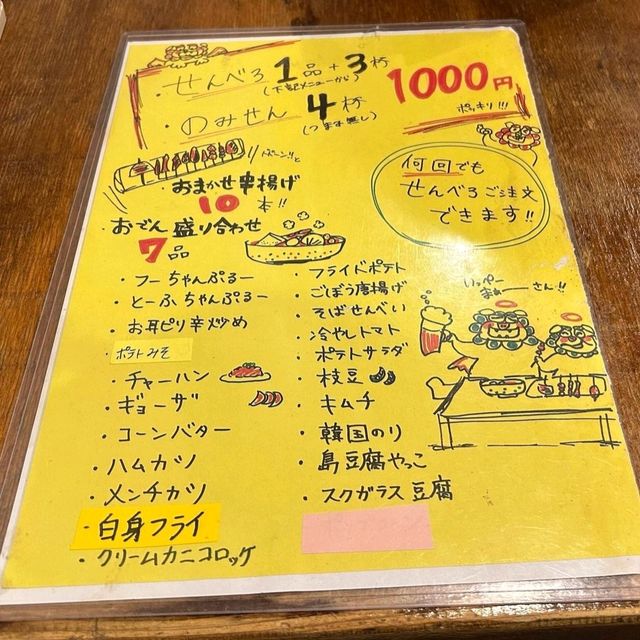 ・せんべろ 1品+3杯
(下記メニューから)
1000円
ポッキリ!!!
・のみせん 4杯
(つまみ無し)
何回でも
せんべろご注文
できます!!
・おまかせ串揚げ
10本!!
・おでん盛り合わせ
7品
・フーちゃんぷるー
・とーふちゃんぷるー
・お耳ピリ辛炒め
・ポテトみそ
・チャーハン
・ギョーザ
・コーンバター
・ハムカツ
・メンチカツ
・白身フライ
・クリームカニコロッケ
・フライドポテト
・ごぼう唐揚げ
・そばせんべい
・冷やしトマト
・ポテトサラダ
・枝豆
・キムチ
・韓国のり
・島豆腐やっこ
・スクガラス豆腐
いっぺー
まぁ～さん!!